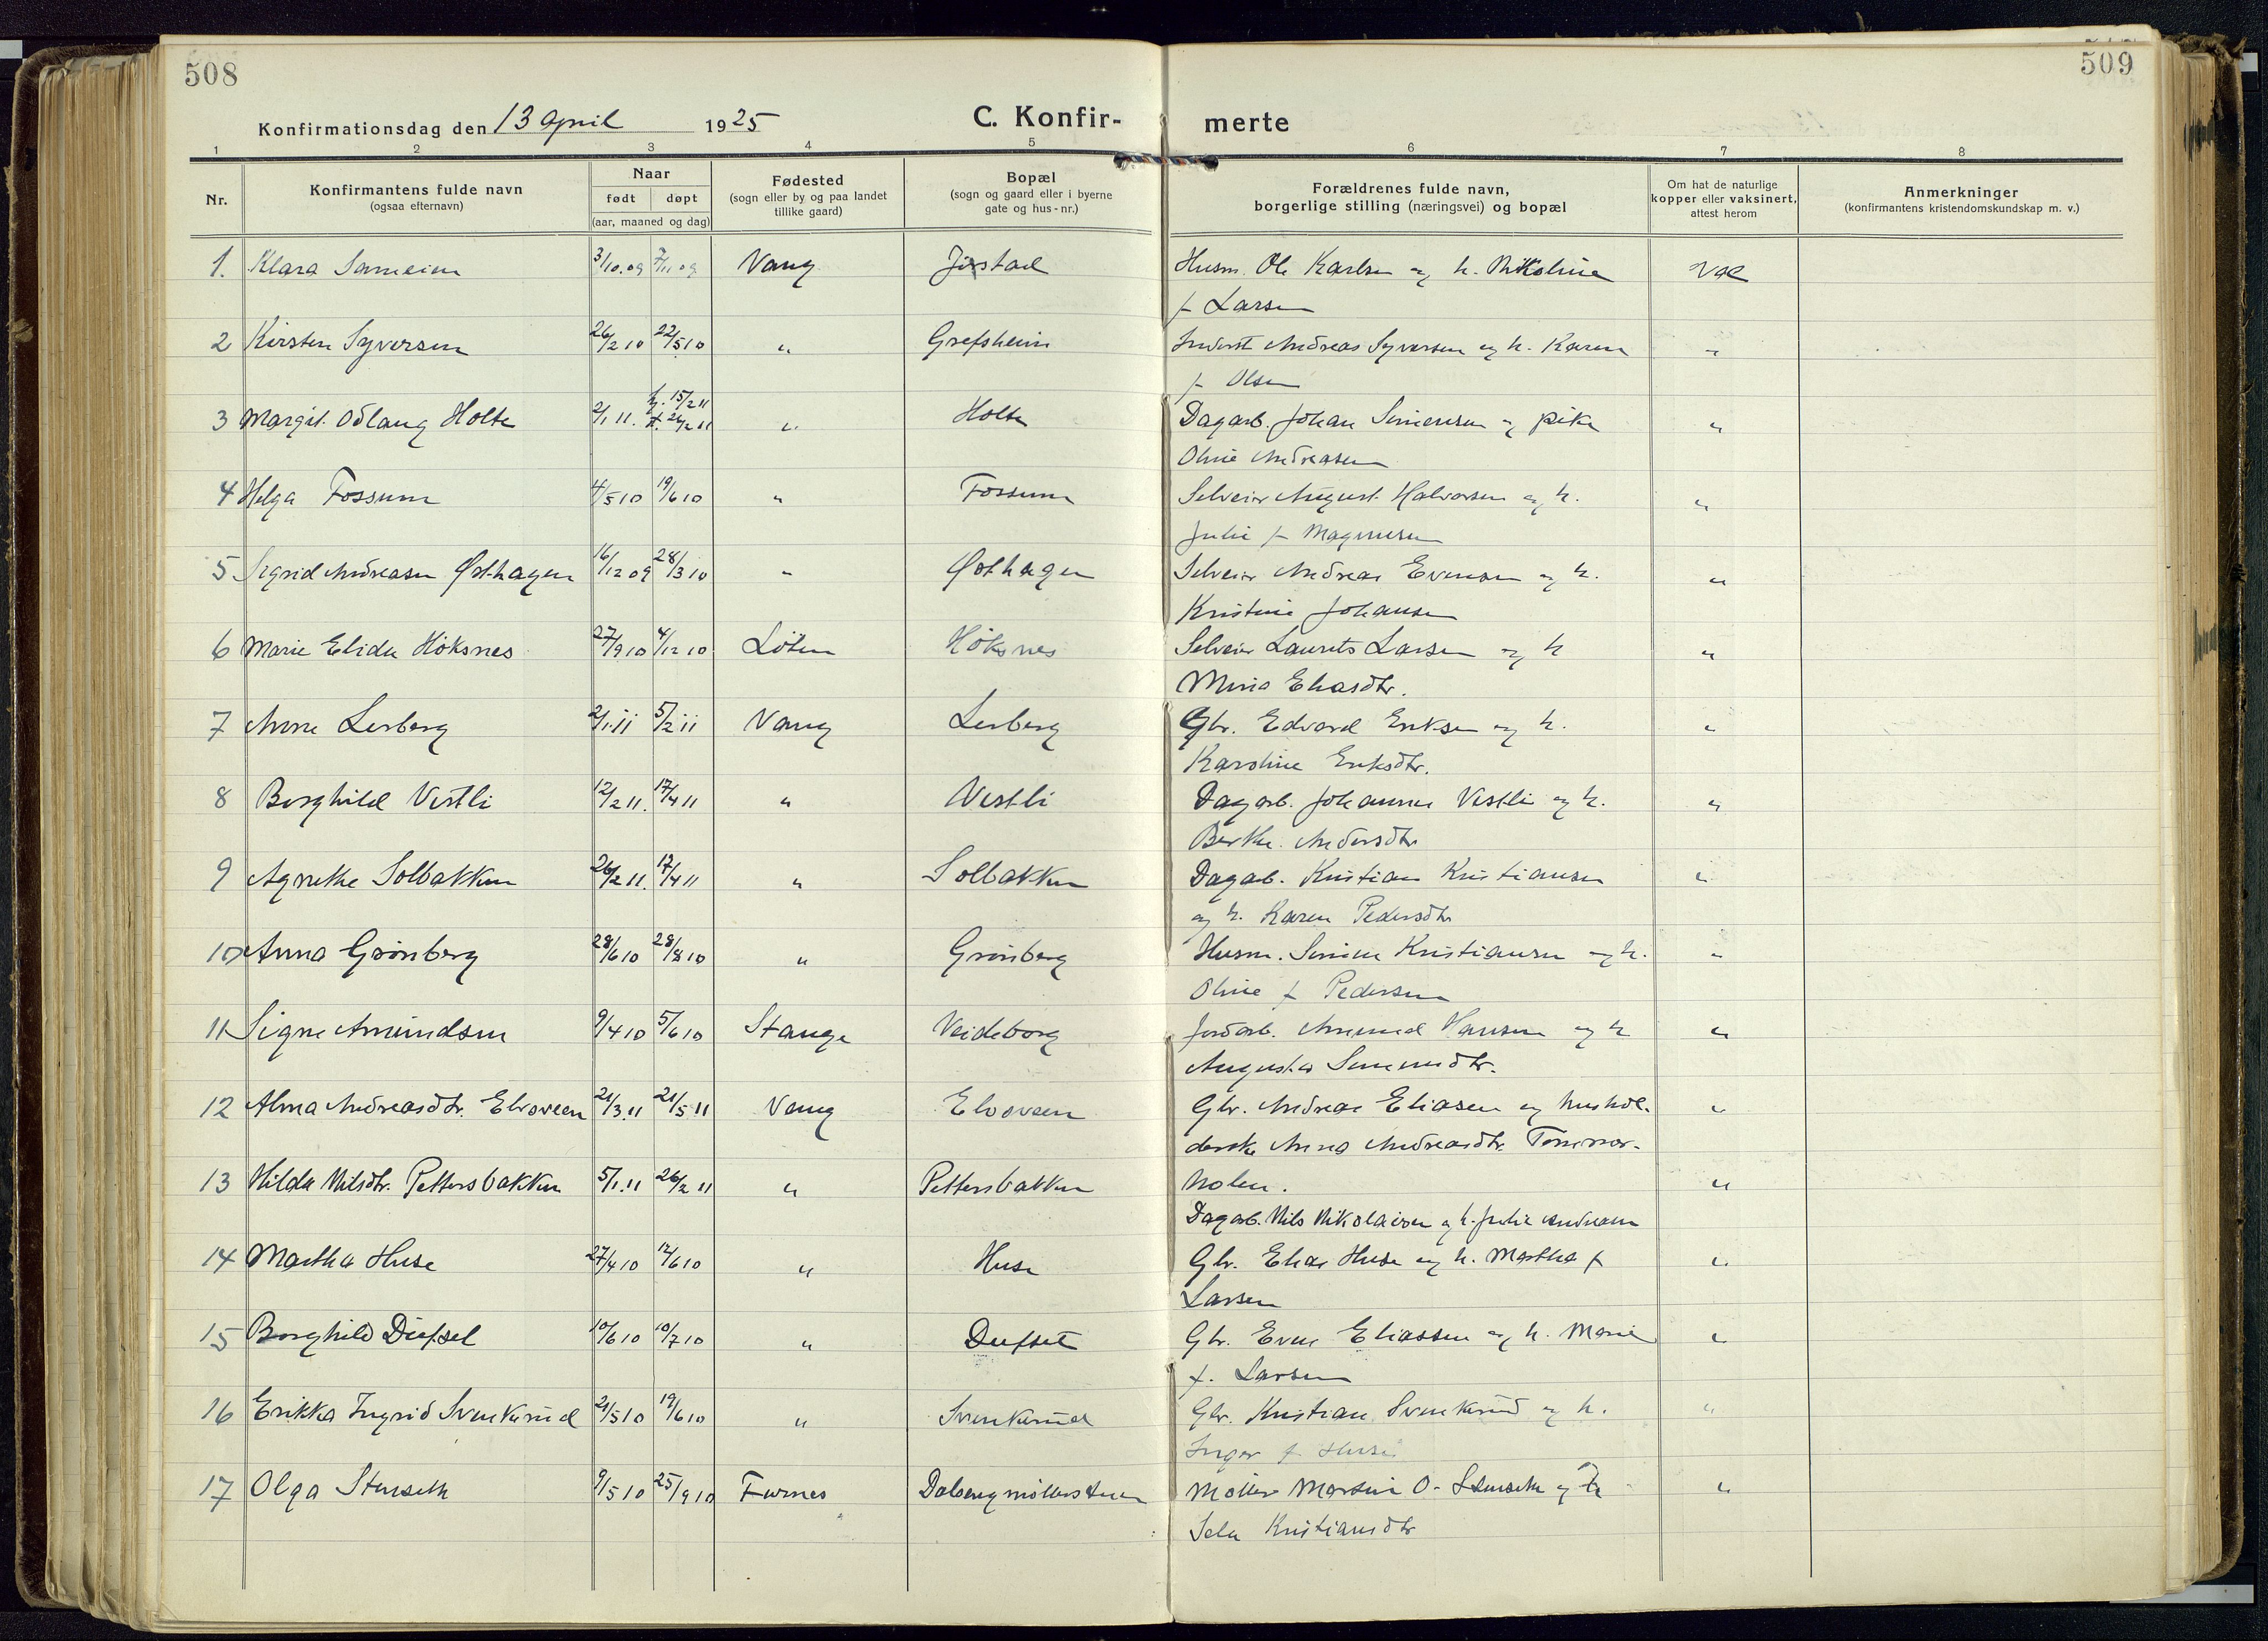 508
509
Konfirmationsdag den 13 April 1925
C. Konfir-
merte
1 2 3 4 5 6 7 8
Nr.
Konfirmantens fulde navn
(ogsaa efternavn)
Naar
født døpt
(aar, maaned og dag)
Fødested
(sogn eller by og paa landet
tillike gaard)
Bopæl
(sogn og gaard eller i byerne
gate og hus-nr.)
Forældrenes fulde navn,
borgerlige stilling (næringsvei) og bopæl
Om hat de naturlige
kopper eller vaksinert,
attest herom
Anmerkninger
(konfirmantens kristendomskundskap m. v.)
1. Klara 3/10.09 7/11 09 Vang Husm. Ole Karlsen og h. Nikoline
f. Larsen
2 Kirsten Syversen 26/2 10 22/5 10 " Grefsheim Inderst Andreas Syversen og h. Karen "
f. Olsen
3 Margit Odlaug Holte 2/1 11. h. 15/2 11 " Holte Dagarb. Johan Simensen og pike "
Oline Andreasen
4 Helga Fossum 4/5 10 19/6 10 " Fossum Selveier August Halvorsen og h. "
Julie f. Magnusen
5 Sigrid Andreasen Østhagen 16/12 09 28/3 10 " Østhagen Selveier Andreas Evensen og h. "
Kristine Johansen
6 Marie Elida Höksnes 27/9 10 4/12 10 Löten Höksnes Selveier Laurits Larsen og h "
Mina Eliasdtr.
7 Anne Lerberg 2/1 11 5/2 11 Vang Lerberg Gbr. Edvard Eriksen og h. "
Karoline Eriksdtr.
8 Borghild Vestli 12/2 11. 17/4 11 " Vestli Dagarb. Johannes Vestli og h. "
Berthe Andersdtr
9 Agnethe Solbakken 26/2 11. 17/4 11 " Solbakken Dagarb. Kristian Kristiansen "
og h. Karen Pedersdtr
10 Anna Grönberg 28/6 10 28/8 10 " Grönberg Husm. Simen Kristiansen og h. "
Oline f. Pedersen
11 Signe Amundsen 9/4 10 5/6 10 Stange Veideborg Jordarb. Amund Hansen og h "
Augusta
12 Alma Andreasdtr. Elvoveen 21/3.11 21/5 11 Vang Elvoveen Gbr. Andreas Eliasen og hushol- "
derske Anna Andreasdtr. Tommer-
13 Hilda Nilsdtr. Pettersbakken 5/1.11 26/2 11 " Pettersbakken holen. "
Dagarb. Nils Nikolaisen og h. Julie Andreasen
14 Martha Huse 27/4 10 12/6 10 " Huse Gbr. Elias Huse og h. Martha f "
Larsen
15 Borghild Dufset 10/6 10 10/7 10 " Dufset Gbr. Even Eliassen og h. Marie "
f. Larsen
16 Erikka Ingrid Svenkerud 21/5 10 19/6 10 " Svenkerud Gbr. Kristian Svenkerud og h. "
Inger f. Huse
17 Olga Stenseth 9/5 10 25/9 10 Furnes Møller Martin O. Stenseth og h "
Kristiansdtr